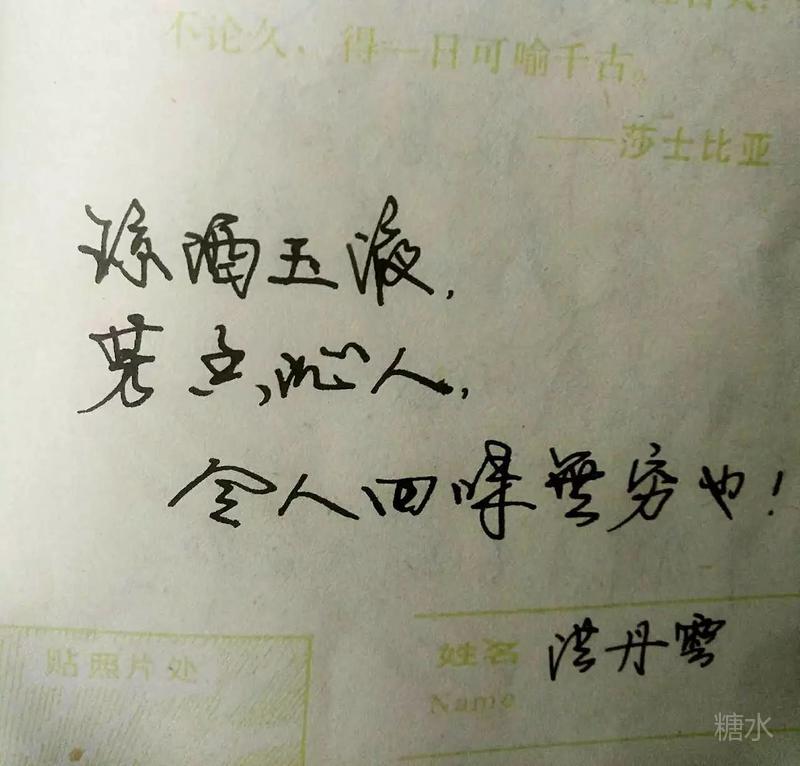 不论久，得一日可喻千古。
——莎士比亚
琼酒玉液，
芳香沁人，
令人回味无穷也！
贴照片处
姓名 洪丹雲
Name
糖水